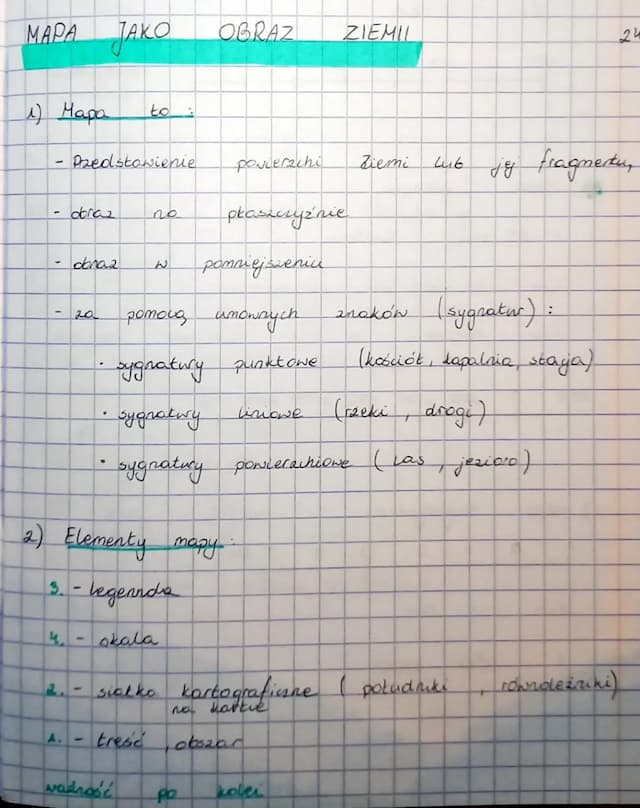 MAPA JAKO OBRAZ ZIEMII 24
1) Mapa to :
- Przedstawienie powierzchi Ziemi lub jej fragmentu,
- obraz na płaszczyźnie
- obraz w pomniejszeniu
- za pomocą umownych znaków (sygnatur) :
· sygnatury punktowe (kościół, kapalnia, stacja)
· sygnatury liniowe (rzeki, drogi)
· sygnatury powierzchiowe (las, jezioro)
2) Elementy mapy :
3. - legennda
4. - skala
2. - siatka kartograficzne ( południki, równoleżniki)
na kartce
1. - treść, obszar
ważność po kolei